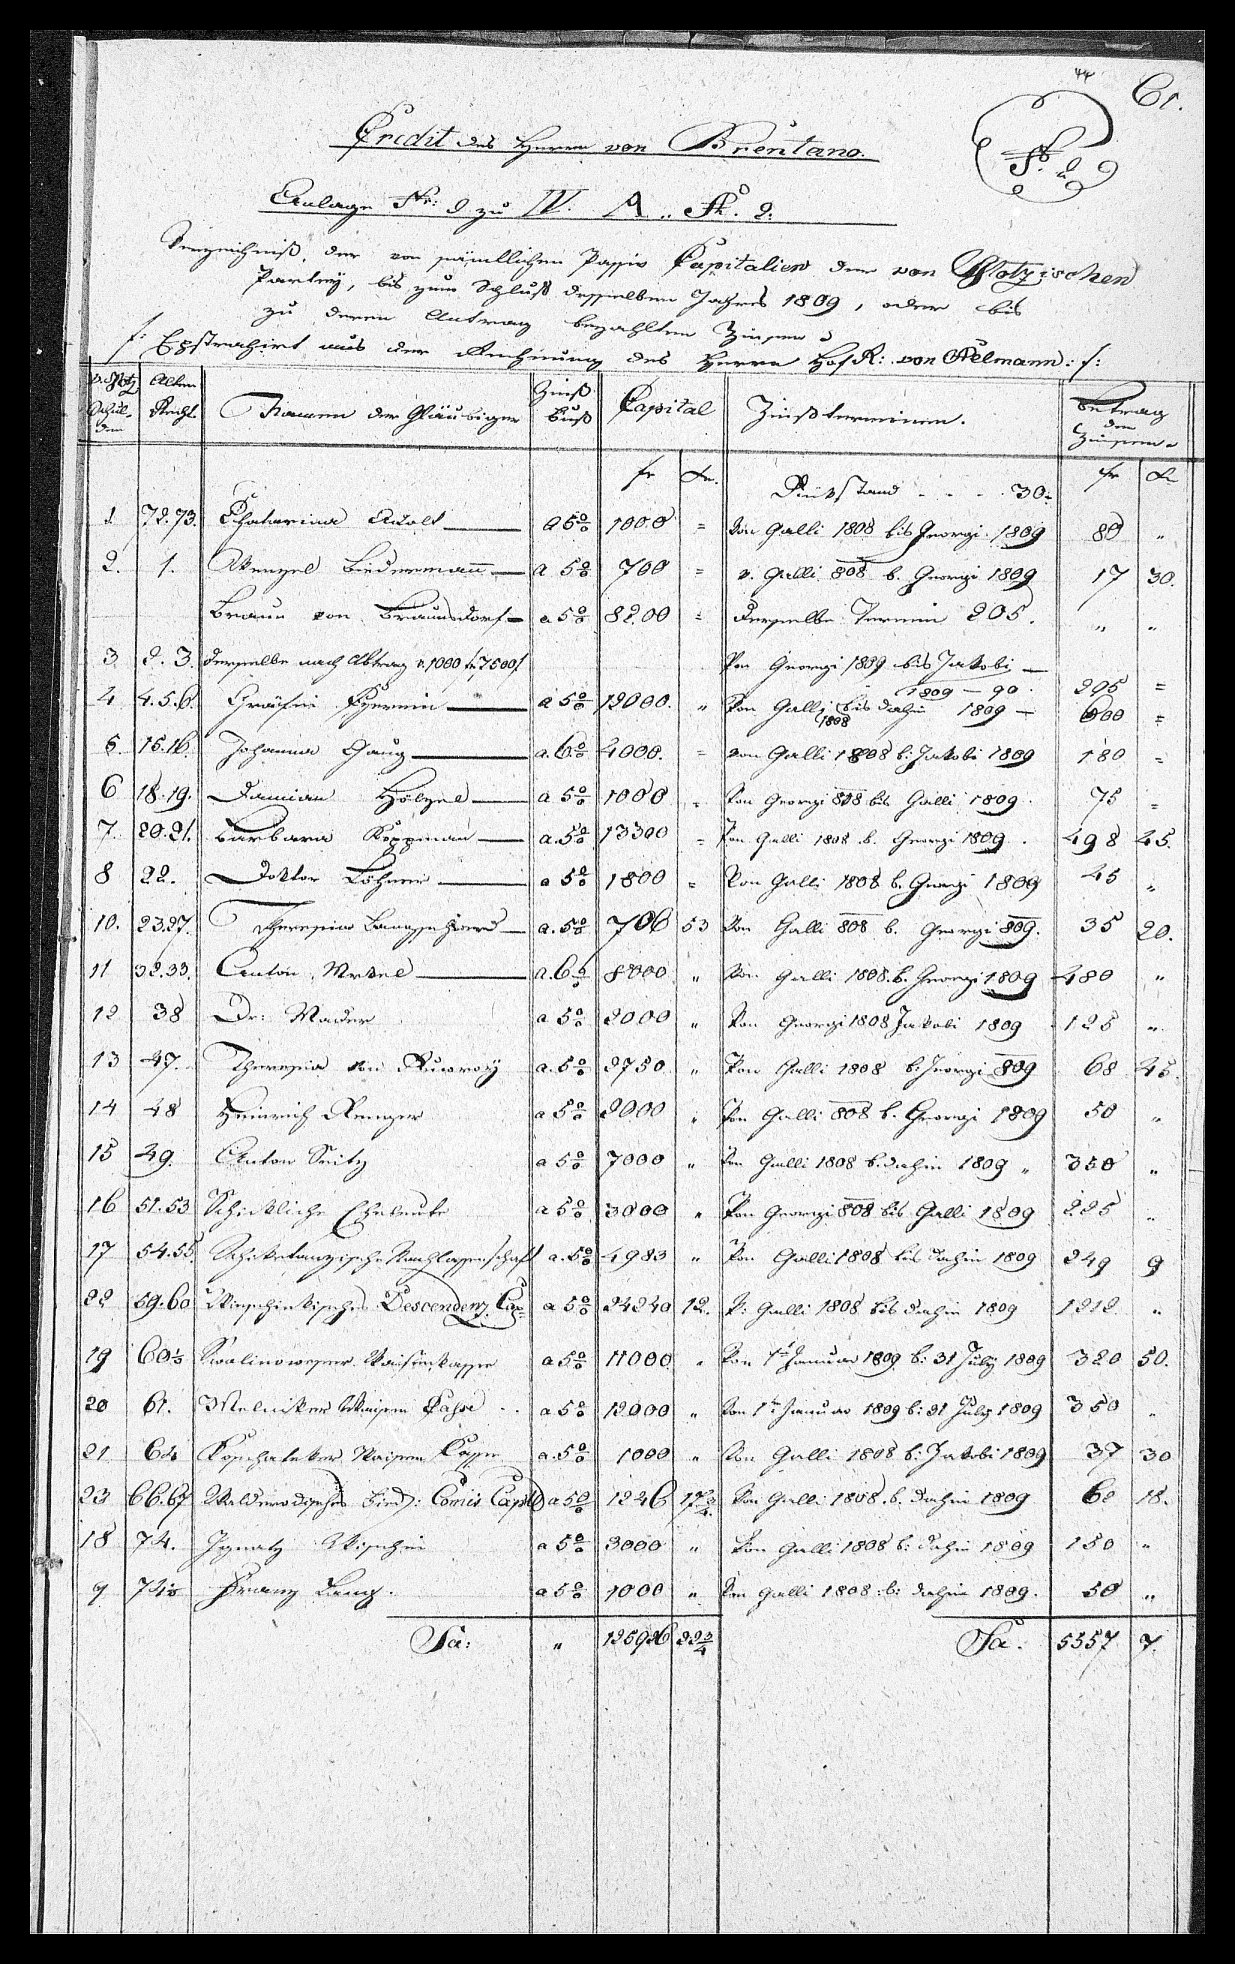 44
61.
Credit des Herrn von Brentano.
No. 2
Anlage Nr: 2 zu IV. A.. No. 2.
Verzeichniß, der von sämtlichen Passiv Capitalien der von Plotzischen
Parthey, bis zum Schluß desselben Jahres 1809, oder bis
zu deren Antrag bezahlten Zinsen
/: Extrahirt aus der Rechnung des Herrn Hof R: von Aelmann :/:
Namen der Gläubiger Zinß Fuß Capital Zinßterminen. Betrag der Zinsen
fr Xr. Rükstand - - - - 30 fr Xr
1 72.73. Chatarina Adolt a 5 % 1000 = von Galli 1808 bis Georgi 1809 80 "
2. 1. Wenzel Biedermann a 5 % 700 = v. Galli 808 b. Georgi 1809 17 30.
Braun von Braunsdorf a 5 % 8200 = Derselbe Termin 205. " "
3 2. 3. derselbe nach Abtrag v. 1000 f. 7500 f Von Georgi 1809 bis Jakobi
1809 - 90. 295 =
4 4.5.6. Gräfin a 5 % 12000 " Von Galli 1808 bis dahin 1809 600 =
5. 15.16. Johanna Gang a. 6 % 4000. = von Galli 1808 b. Jakobi 1809 180 =
6 18.19. Damian Hölzel a 5 % 1000 = Von Georgi 808 bis Galli 1809. 75 =
7. 20.21. Barbara Koppman a. 5 % 13300 = Von Galli 1808 b. Georgi 1809. 498 45.
8 22. Doktor Löhner a 5 % 1800 = Von Galli 1808 b. Georgi 1809 45 "
10. 23.27. Theresia a. 5 % 706 53 Von Galli 808 b. Georgi 809. 35 20.
11 32.33. Anton a. 6 % 8000 " Von Galli 1808. b. Georgi 1809 480 "
12 38 Dr: Mader a 5 % 2000 " Von Georgi 1808 Jakobi 1809 125 "
13 47. Theresia von a. 5 % 2750 " Von Galli 1808 b. Georgi 809 68 45.
14 48 Heinrich Renger a 5 % 2000 " Von Galli 808 b. Georgi 1809 50 "
15 49. Anton Seitz a 5 % 7000 " Von Galli 1808 b. dahin 1809 " 350 "
16 51.53 Schikliche Eheleute a 5 % 3000 " Von Georgi 808 bis Galli 1809 225 "
17 54.55. Verlassenschaft a. 5 % 4983 " Von Galli 1808 bis dahin 1809 249 9
22 59.60 Descendenz Cap: a 5 % 24240 12. V: Galli 1808 bis dahin 1809 1212 "
19 60½ Waisenkasse a 5 % 11000 " Von 1ten Januar 1809 b: 31 July 1809 320 50.
20 61. Melniker Waisen Kasse - - a. 5 % 12000 " Von 1ten Januar 1809 b: 31 July 1809 350 "
21 64 Waisen Kasse a. 5 % 1000 " Von Galli 1808 b: Jakobi 1809 37 30
23 66.67 a 5 % 1246 17¾. Von Galli 1808. b. dahin 1809 62 18.
18 74. Ignatz a 5 % 3000 " Von Galli 1808 b: dahin 1809 150 "
9 74½ Franz Lang. a 5 % 1000 " Von Galli 1808: b: dahin 1809. 50 "
Sa: " 125926 22¾ Sa: 5357 7.